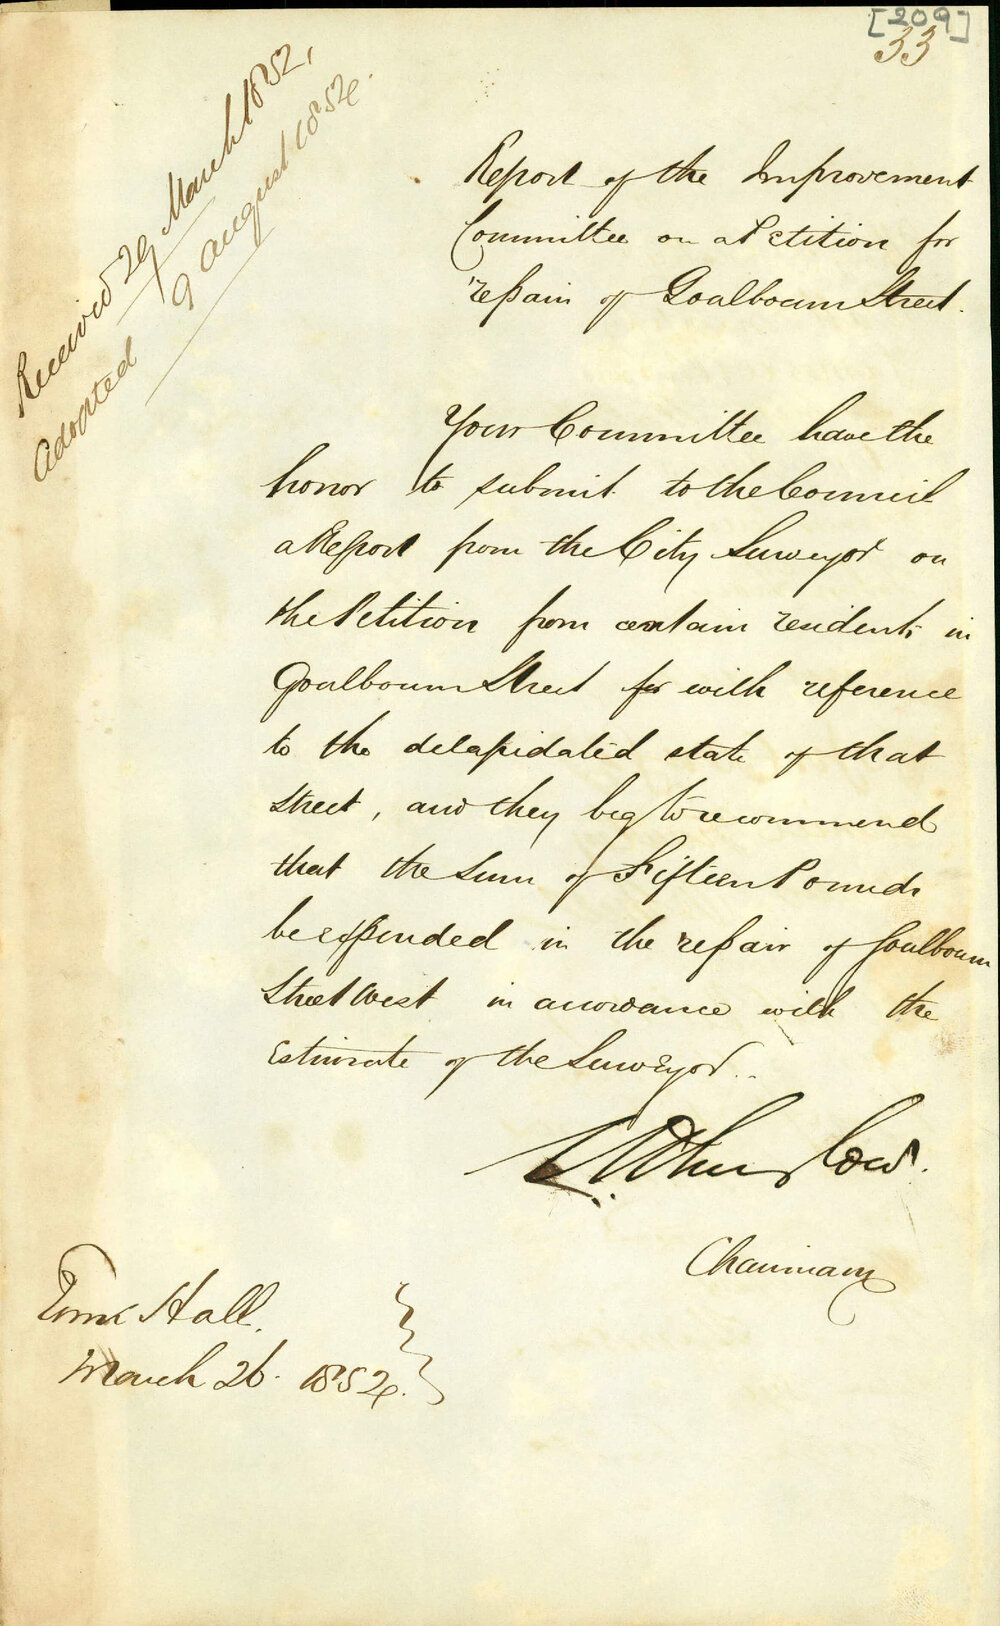 [209]
33
Received 29 March 1852,
Adopted 9 August 1852.
Report of the Improvement
Committee on a Petition for
repair of Goalbourn Street.
Your Committee have the
honor to submit to the Council
a Report from the City Surveyor on
the Petition from certain residents in
Goulbourn Street for with reference
to the delapidated state of that
Street, and they beg to recommend
that the Sum of Fifteen Pounds
be expended in the repair of Goulbourn
Street West in accordance with the
Estimate of the Surveyor.
Thurlow.
Chairman
Town Hall.
March 26. 1852.